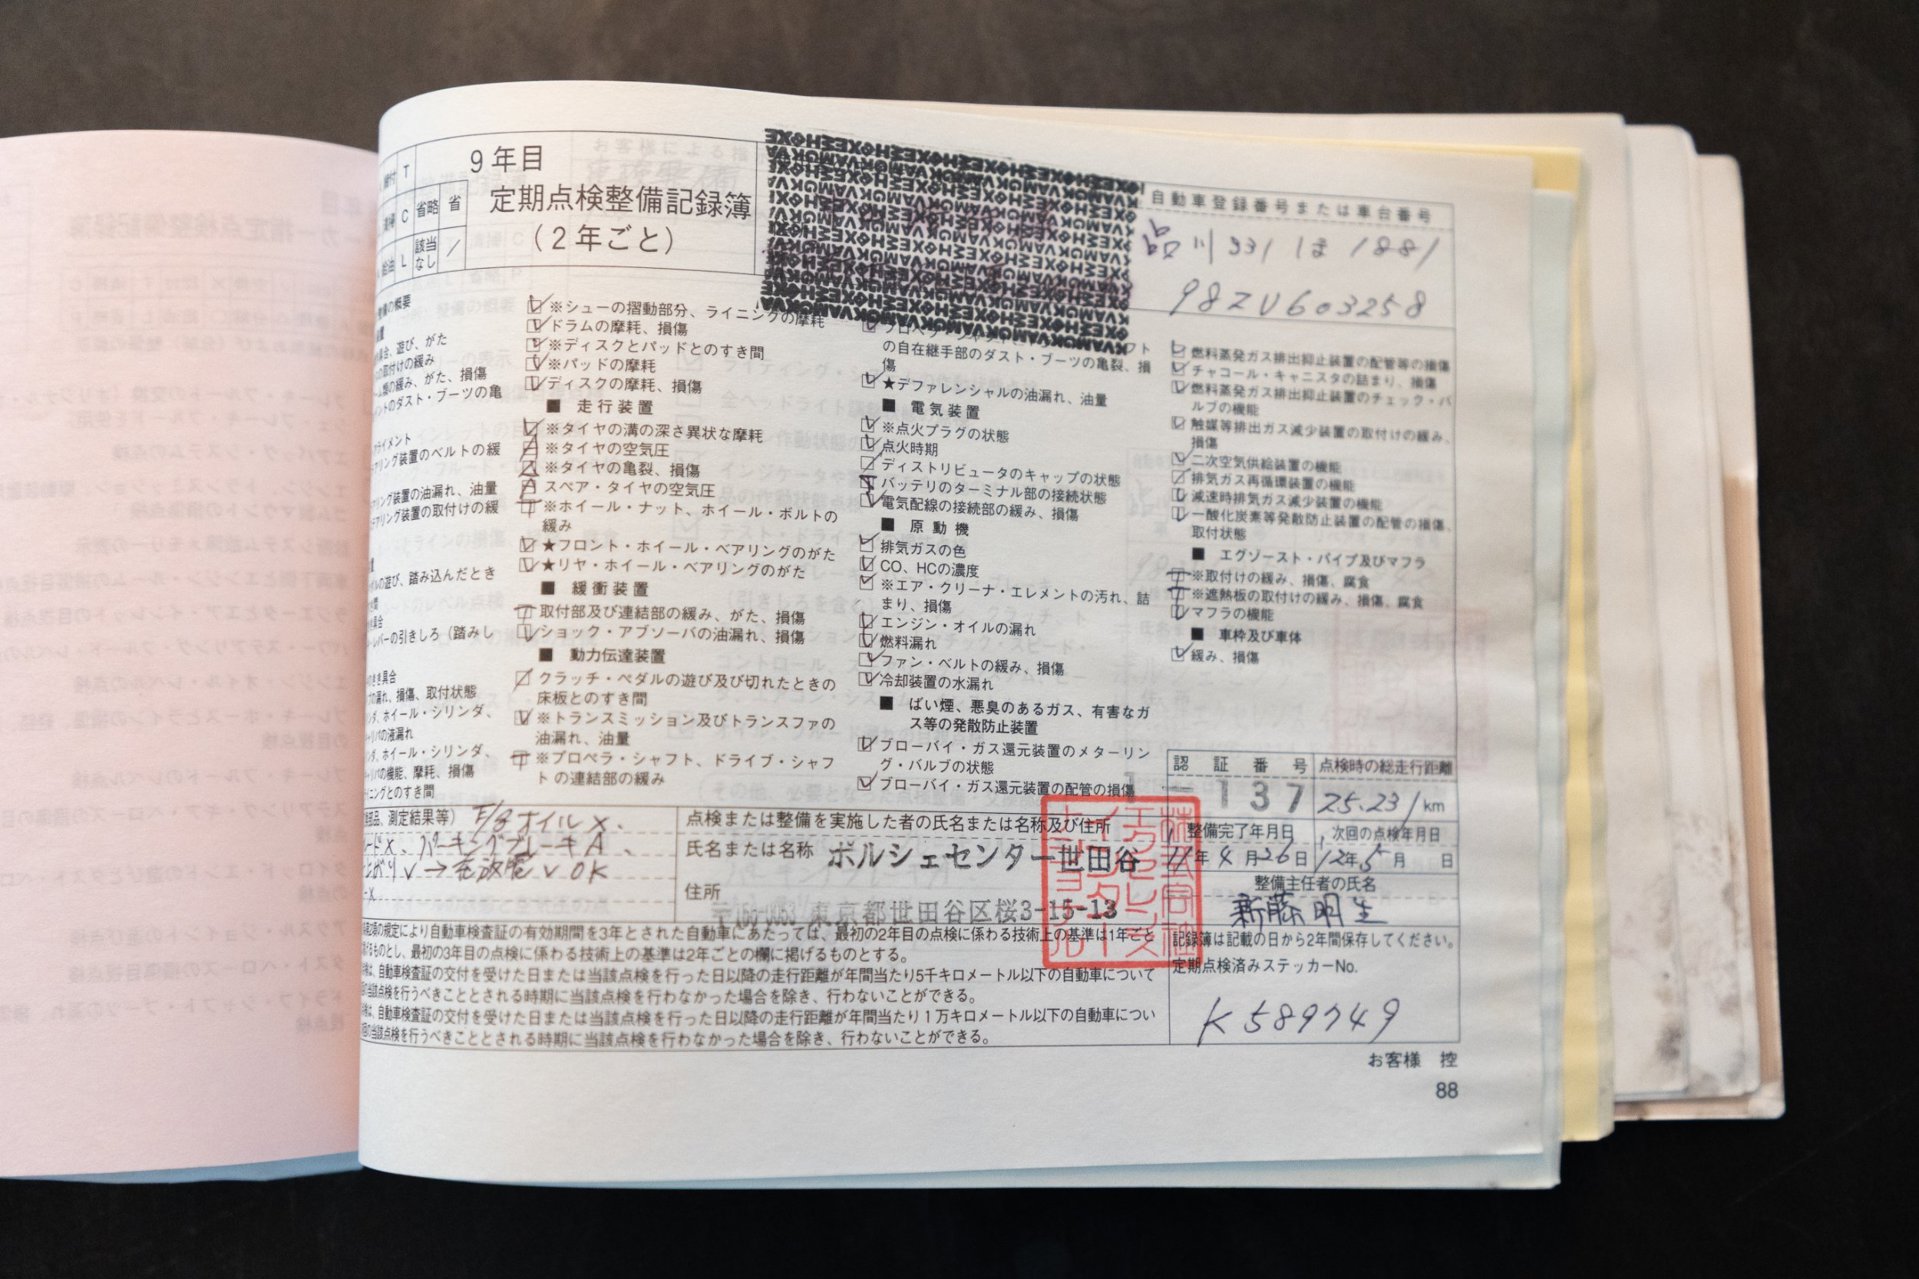 付 T
C 省略 省
給油 L 該当なし /
9年目
定期点検整備記録簿
(2年ごと)
自動車登録番号または車台番号
品川 331 は 1881
98ZU603258
の概要
具合、遊び、がた
の取付けの緩み
ーム類の緩み、がた、損傷
ントのダスト・ブーツの亀
ライメント
アリング装置のベルトの緩
アリング装置の油漏れ、油量
アリング装置の取付けの緩
ルの遊び、踏み込んだとき
レバーの引きしろ(踏みし
のきき具合
の漏れ、損傷、取付状態
ンダ、ホイール・シリンダ、
ャリパの液漏れ
ンダ、ホイール・シリンダ、
ャリパの機能、摩耗、損傷
イニングとのすき間
※シューの摺動部分、ライニングの摩耗
ドラムの摩耗、損傷
※ディスクとパッドとのすき間
※パッドの摩耗
ディスクの摩耗、損傷
■ 走行装置
※タイヤの溝の深さ異状な摩耗
※タイヤの空気圧
※タイヤの亀裂、損傷
スペア・タイヤの空気圧
※ホイール・ナット、ホイール・ボルトの
緩み
★フロント・ホイール・ベアリングのがた
★リヤ・ホイール・ベアリングのがた
■ 緩衝装置
取付部及び連結部の緩み、がた、損傷
ショック・アブソーバの油漏れ、損傷
■ 動力伝達装置
クラッチ・ペダルの遊び及び切れたときの
床板とのすき間
※トランスミッション及びトランスファの
油漏れ、油量
※プロペラ・シャフト、ドライブ・シャフ
トの連結部の緩み
の自在継手部のダスト・ブーツの亀裂、損
傷
★デファレンシャルの油漏れ、油量
■ 電気装置
※点火プラグの状態
点火時期
ディストリビュータのキャップの状態
バッテリのターミナル部の接続状態
電気配線の接続部の緩み、損傷
■ 原動機
排気ガスの色
CO、HCの濃度
※エア・クリーナ・エレメントの汚れ、詰
まり、損傷
エンジン・オイルの漏れ
燃料漏れ
ファン・ベルトの緩み、損傷
冷却装置の水漏れ
■ ばい煙、悪臭のあるガス、有害なガ
ス等の発散防止装置
ブローバイ・ガス還元装置のメターリン
グ・バルブの状態
ブローバイ・ガス還元装置の配管の損傷
燃料蒸発ガス排出抑止装置の配管等の損傷
チャコール・キャニスタの詰まり、損傷
燃料蒸発ガス排出抑止装置のチェック・バ
ルブの機能
触媒等排出ガス減少装置の取付けの緩み、
損傷
二次空気供給装置の機能
排気ガス再循環装置の機能
減速時排気ガス減少装置の機能
一酸化炭素等発散防止装置の配管の損傷、
取付状態
■ エグゾースト・パイプ及びマフラ
※取付けの緩み、損傷、腐食
※遮熱板の取付けの緩み、損傷、腐食
マフラの機能
■ 車枠及び車体
緩み、損傷
部品、測定結果等) E/gオイル×、
ード×、パーキングブレーキA、
OK
点検または整備を実施した者の氏名または名称及び住所
氏名または名称 ポルシェセンター世田谷
住所
〒158-0053 東京都世田谷区桜3-15-13
認証番号 点検時の総走行距離
137 25.231 km
整備完了年月日 次回の点検年月日
11年4月26日 12年5月 日
整備主任者の氏名
新藤明生
記録簿は記載の日から2年間保存してください。
定期点検済みステッカーNo.
K589749
2項の規定により自動車検査証の有効期間を3年とされた自動車にあたっては、最初の2年目の点検に係わる技術上の基準は1年ごと
げるものとし、最初の3年目の点検に係わる技術上の基準は2年ごとの欄に掲げるものとする。
検は、自動車検査証の交付を受けた日または当該点検を行った日以降の走行距離が年間当たり5千キロメートル以下の自動車について
の当該点検を行うべきこととされる時期に当該点検を行わなかった場合を除き、行わないことができる。
検は、自動車検査証の交付を受けた日または当該点検を行った日以降の走行距離が年間当たり1万キロメートル以下の自動車につい
の当該点検を行うべきこととされる時期に当該点検を行わなかった場合を除き、行わないことができる。
お客様 控
88